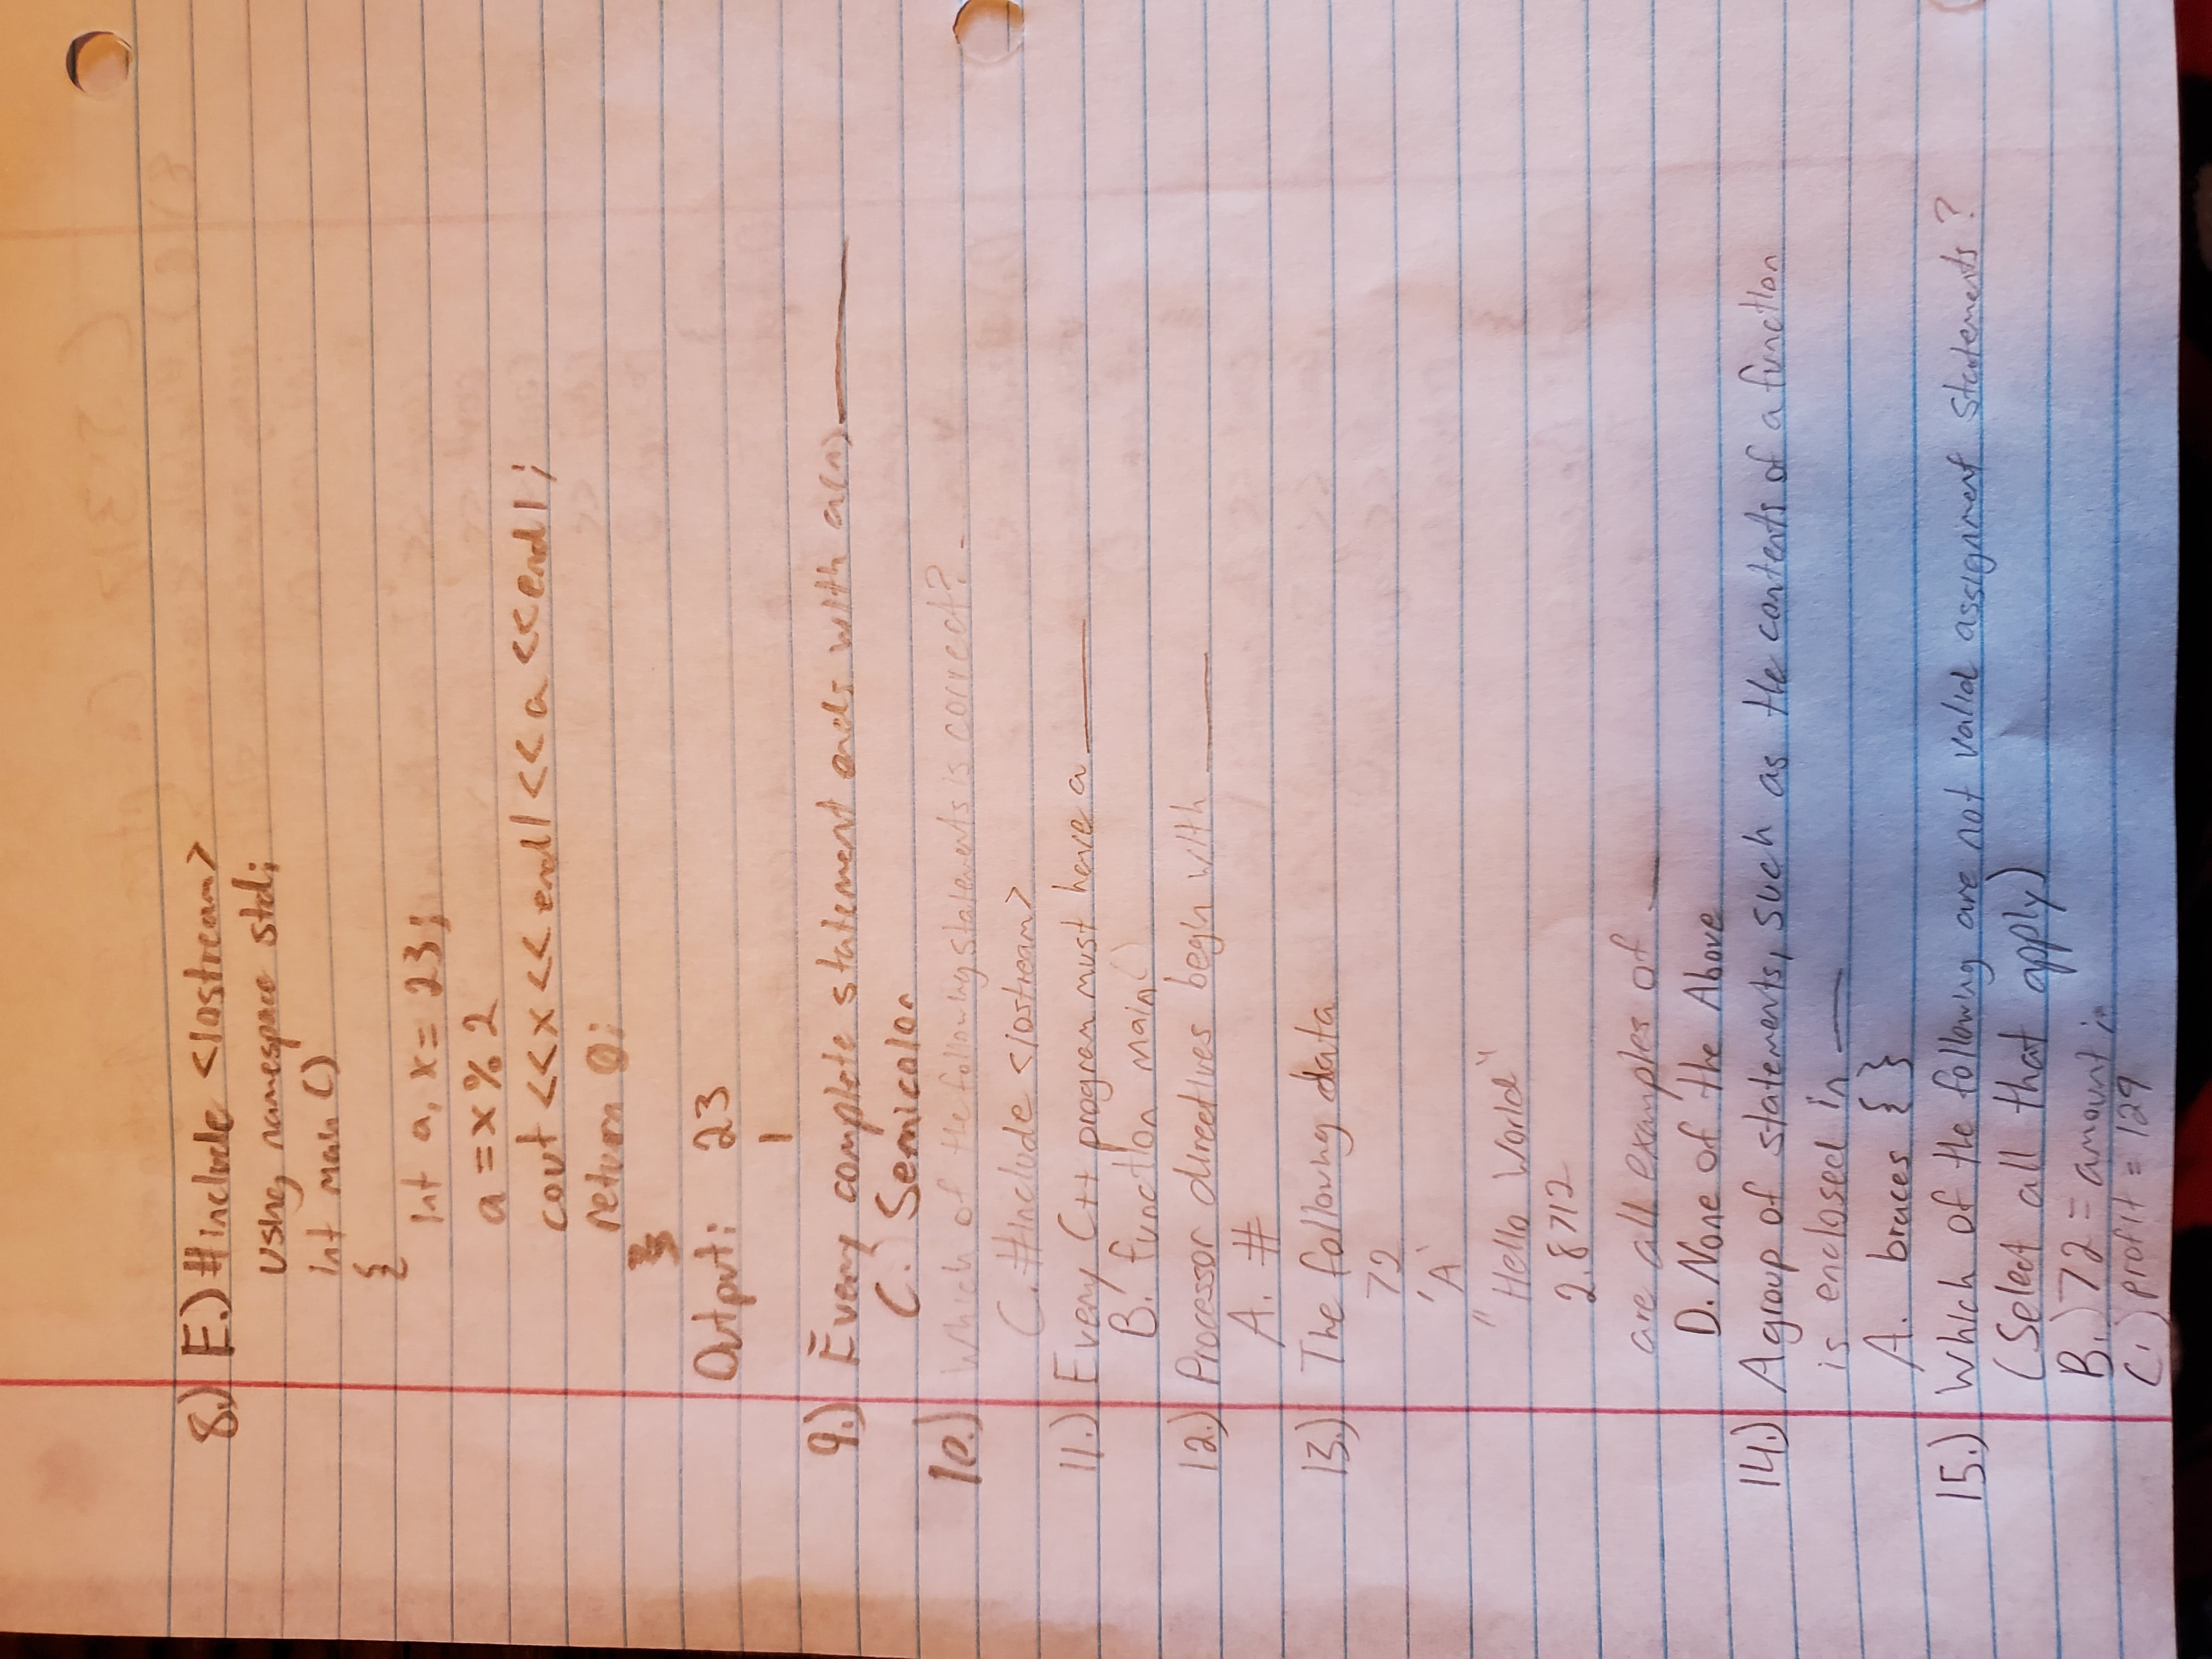 8.) E.) #include <iostream>
using namespace std;
int main ()
{
int a, x = 23;
a = x % 2
cout << x << endl << a << endl;
return 0;
}
Output: 23
1
9.) Every complete statement ends with a(n) ____
C. Semicolon
10.) Which of the following statements is correct?
C. #include <iostream>
11.) Every C++ program must have a ____
B. function main()
12.) Processor directives begin with ____
A. #
13.) The following data
72
'A'
"Hello World"
2.8712
are all examples of __
D. None of the Above
14.) A group of statements, such as the contents of a function
is enclosed in ___
A. braces { }
15.) Which of the following are not valid assignment statements?
(Select all that apply)
B.) 72 = amount;
C.) profit = 129